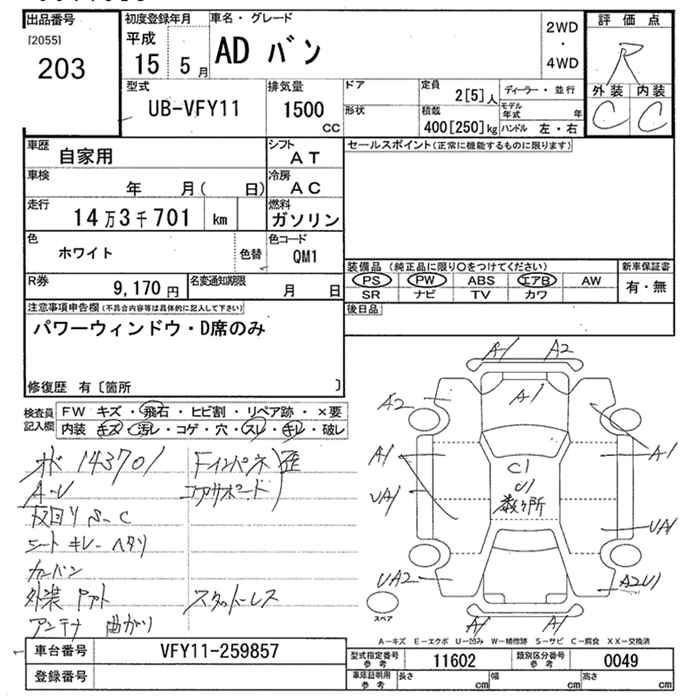 出品番号
[2055]
203
初度登録年月
平成
15 5月
車名・グレード
AD バン
2WD
・
4WD
評価点
R
外装 内装
C C
型式
UB-VFY11
排気量
1500
cc
ドア
形状
定員
2[5]人
積載
400[250]kg
ディーラー・並行
モデル年式 年
ハンドル 左・右
車歴
自家用
シフト
AT
セールスポイント(正常に機能するものに限ります)
車検
年 月( 日)
冷房
AC
走行
14万3千701 km
燃料
ガソリン
色
ホワイト
色替
色コード
QM1
装備品 (純正品に限り○をつけてください)
PS PW ABS エアB AW
SR ナビ TV カワ
新車保証書
有・無
R券
9,170円
名変通知期限
月 日
後日品
注意事項申告欄(不具合内容等は具体的に記入して下さい)
パワーウィンドウ・D席のみ
修復歴 有〔箇所 〕
検査員記入欄
FW キズ・飛石・ヒビ割・リペア跡・×要
内装 キズ・汚レ・コゲ・穴・スレ・キレ・破レ
メーター 143701
A-U
下回り S-C
シート キレ ヘタリ
カーバン
外装
アンテナ 曲がり
Fインパネ 歪
コアサポート
スタッドレス
A1 A2
A2
A1
A1
A1
UA1
C1
U1
数ヶ所
UA1
UA2
A2U1
A1
A1
スペア
A−キズ E−エクボ U−凹ミ W−補修跡 S−サビ C−腐食 XX−交換済
車台番号
VFY11-259857
登録番号
型式指定番号
参考
11602
類別区分番号
参考
0049
車庫証明用
参考
長さ cm
幅 cm
高さ cm